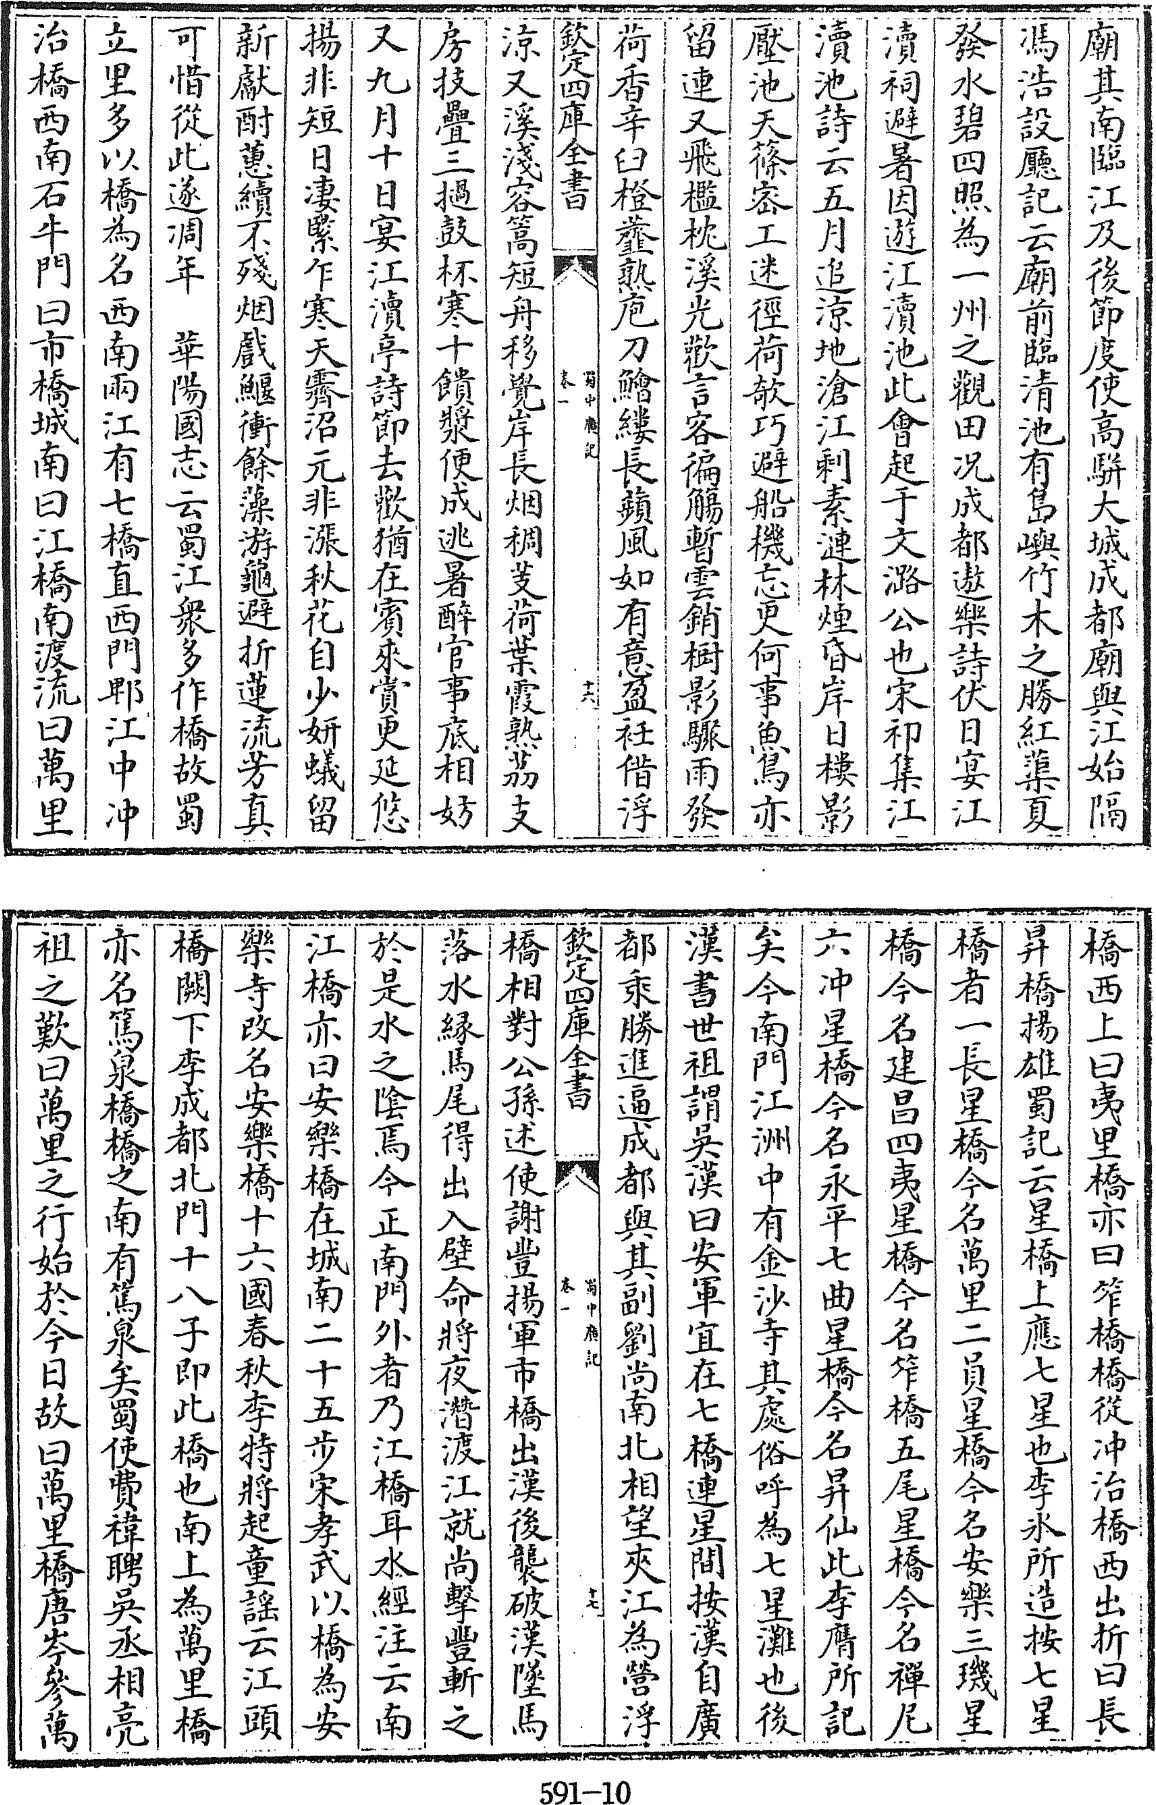 廟其南臨江及後節度使高駢大城成都廟與江始隔
馮浩設廳記云廟前臨清池有島嶼竹木之勝紅蕖夏
發水碧四照為一州之觀田况成都遨樂詩伏日宴江
瀆祠避暑因遊江瀆池此會起于文潞公也宋祁集江
瀆池詩云五月追涼地滄江剩素漣林煙昏岸日樓影
壓池天篠密工迷徑荷欹巧避船機忘更何事魚鳥亦
留連又飛檻枕溪光歡言客徧觴暫雲銷樹影驟雨發
荷香辛臼橙虀熟庖刀鱠縷長蘋風如有意盈衽借浮
欽定四庫全書
蜀中廣記
卷一
十六
涼又溪淺容篙短舟移覺岸長烟稠芰荷葉霞熟荔支
房技疊三撾鼓杯寒十饋漿便成逃暑醉官事底相妨
又九月十日宴江瀆亭詩節去歡猶在賓來賞更延悠
揚非短日凄緊乍寒天霽沼元非漲秋花自少妍蟻留
新獻酎蔥續不殘烟戲鰋衝餘藻游龜避折蓮流芳真
可惜從此遂凋年　華陽國志云蜀江衆多作橋故蜀
立里多以橋為名西南兩江有七橋直西門郫江中冲
治橋西南石牛門曰市橋城南曰江橋南渡流曰萬里
橋西上曰夷里橋亦曰笮橋橋從冲治橋西出折曰長
昇橋揚雄蜀記云星橋上應七星也李氷所造按七星
橋者一長星橋今名萬里二員星橋今名安樂三璣星
橋今名建昌四夷星橋今名笮橋五尾星橋今名禪尼
六冲星橋今名永平七曲星橋今名昇仙此李膺所記
矣今南門江洲中有金沙寺其處俗呼為七星灘也後
漢書世祖謂吳漢曰安軍宜在七橋連星間按漢自廣
都乘勝進逼成都與其副劉尚南北相望夾江為營浮
欽定四庫全書
蜀中廣記
卷一
十七
橋相對公孫述使謝豐揚軍市橋出漢後襲破漢墜馬
落水緣馬尾得出入壁命將夜潛渡江就尚擊豐斬之
於是水之陰焉今正南門外者乃江橋耳水經注云南
江橋亦曰安樂橋在城南二十五步宋孝武以橋為安
樂寺改名安樂橋十六國春秋李特將起童謡云江頭
橋闕下李成都北門十八子即此橋也南上為萬里橋
亦名篤泉橋橋之南有篤泉矣蜀使費禕聘吳丞相亮
祖之歎曰萬里之行始於今日故曰萬里橋唐岑參萬
591-10